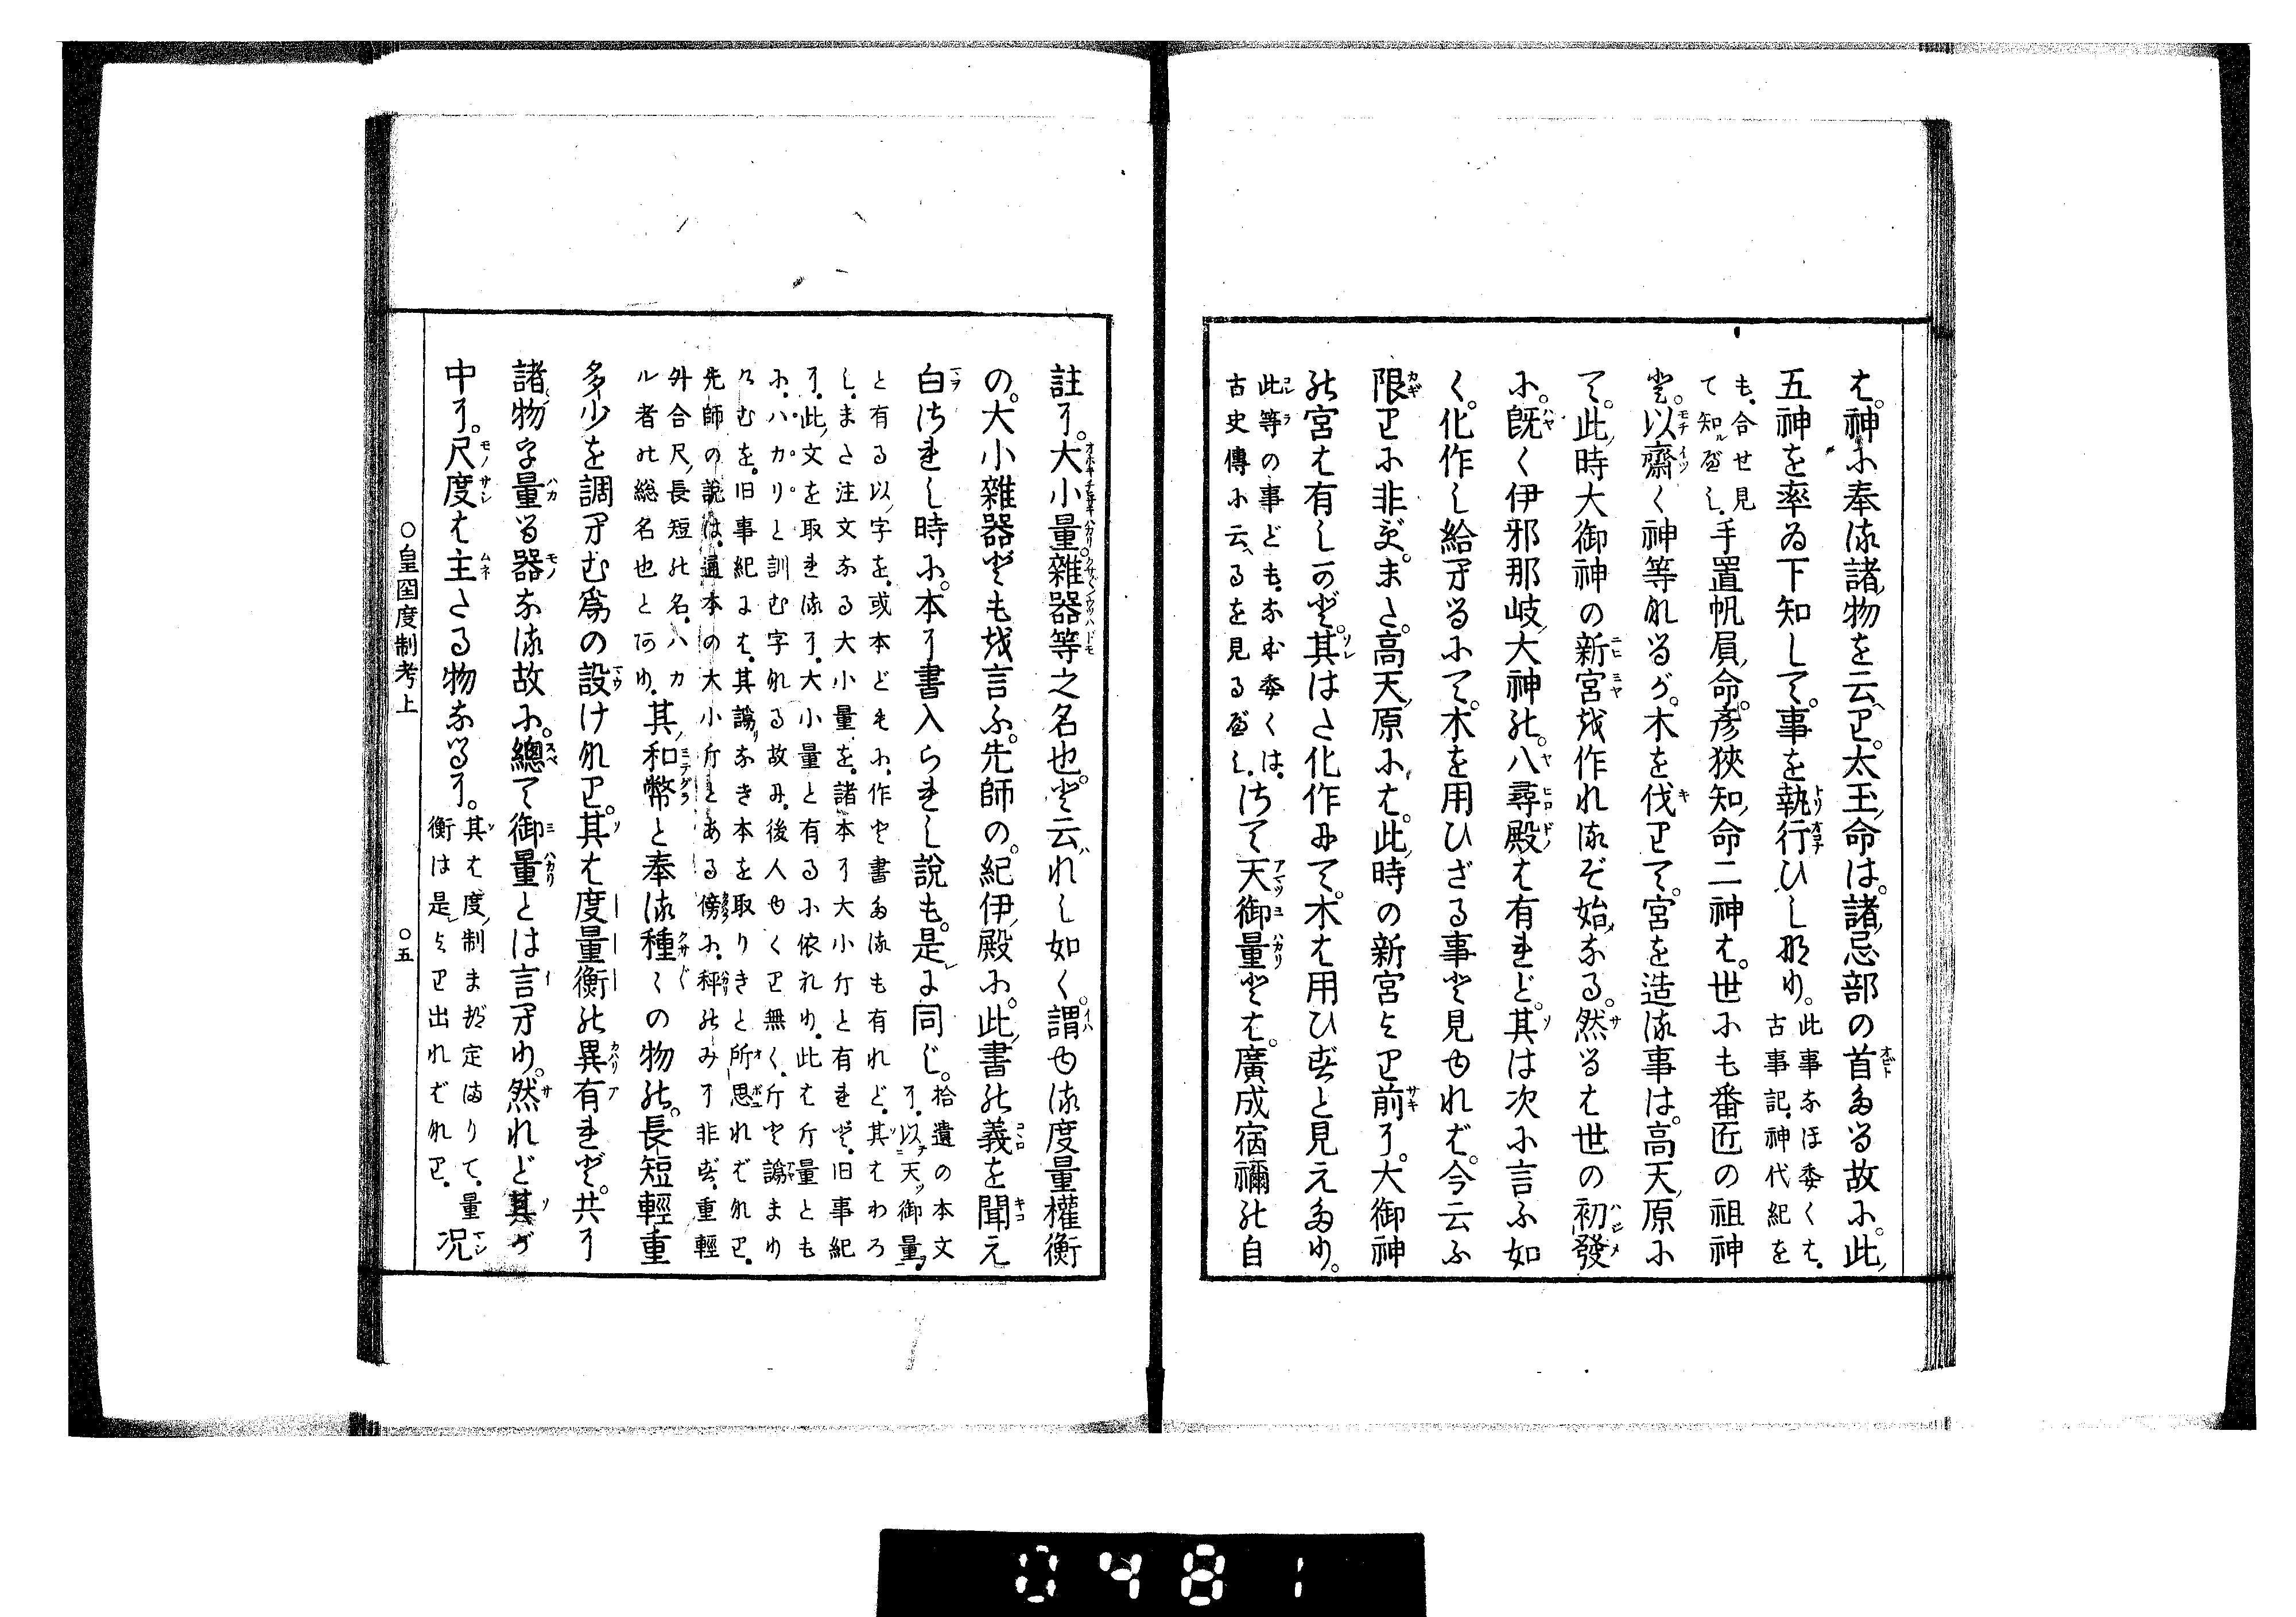 は。神に奉る諸物を云へり。太玉命は。諸忌部の首たる故に。此
五神を率ゐ下知して。事を執行ひしなり。此事なほ委くは。
古事記。神代紀を
も。合せ見
て知べし。手置帆負命。彦狹知命二神は。世にも番匠の祖神
と。以齋く神等なるが。木を伐りて。宮を造る事は。高天原に
て。此時大御神の新宮を作れるぞ始なる。然るは世の初發
に。既く伊邪那岐大神の。八尋殿は有れど。其は次に言ふ如
く。化作し給へるにて。木を用ひざる事と見ゆれば。今云ふ
限りに非ず。また高天原には。此時の新宮より前に。大御神
の宮は有しかど。其はた化作にて。木は用ひずと見えたり。
此等の事ども。なほ委くは。
古史傳に云へるを見るべし。さて天御量とは。廣成宿禰の自
註に。大小量雜器等之名也。と云れし如く。謂ゆる度量權衡
の。大小雜器どもを言ふ。先師の。紀伊殿に。此書の義を聞え
白されし時に。本に書入られし説も。是に同じ。拾遺の本文
に。以天御量。
と有る以字を。或本どもに。作と書たるも有れど。其はわろ
し。また注文なる大小量を。諸本に大小斤と有れど。旧事紀
に。此文を取れるに。大小量と有るに依れり。此は斤量とも
に。ハカリと訓む字なる故に。後人ゆくり無く。斤と譌まり
けむを。旧事紀には。其譌りなき本を取りきと所思ればなり。
先師の説は。通本の大小斤とある傍に。秤のみに非ず。重輕
外合尺長短の名。ハカ
ル者の総名也とあり。其和幣と奉る種〻の物の。長短輕重
多少を調へむ爲の設けなり。其は度量衡の異有れど。共に
諸物を量る器なる故に。總て御量とは言へり。然れど其が
中に。尺度は主たる物なるに。其は度制まづ定まりて。量
衡は是より出ればなり。況
○皇圀度制考上 ○五
0481